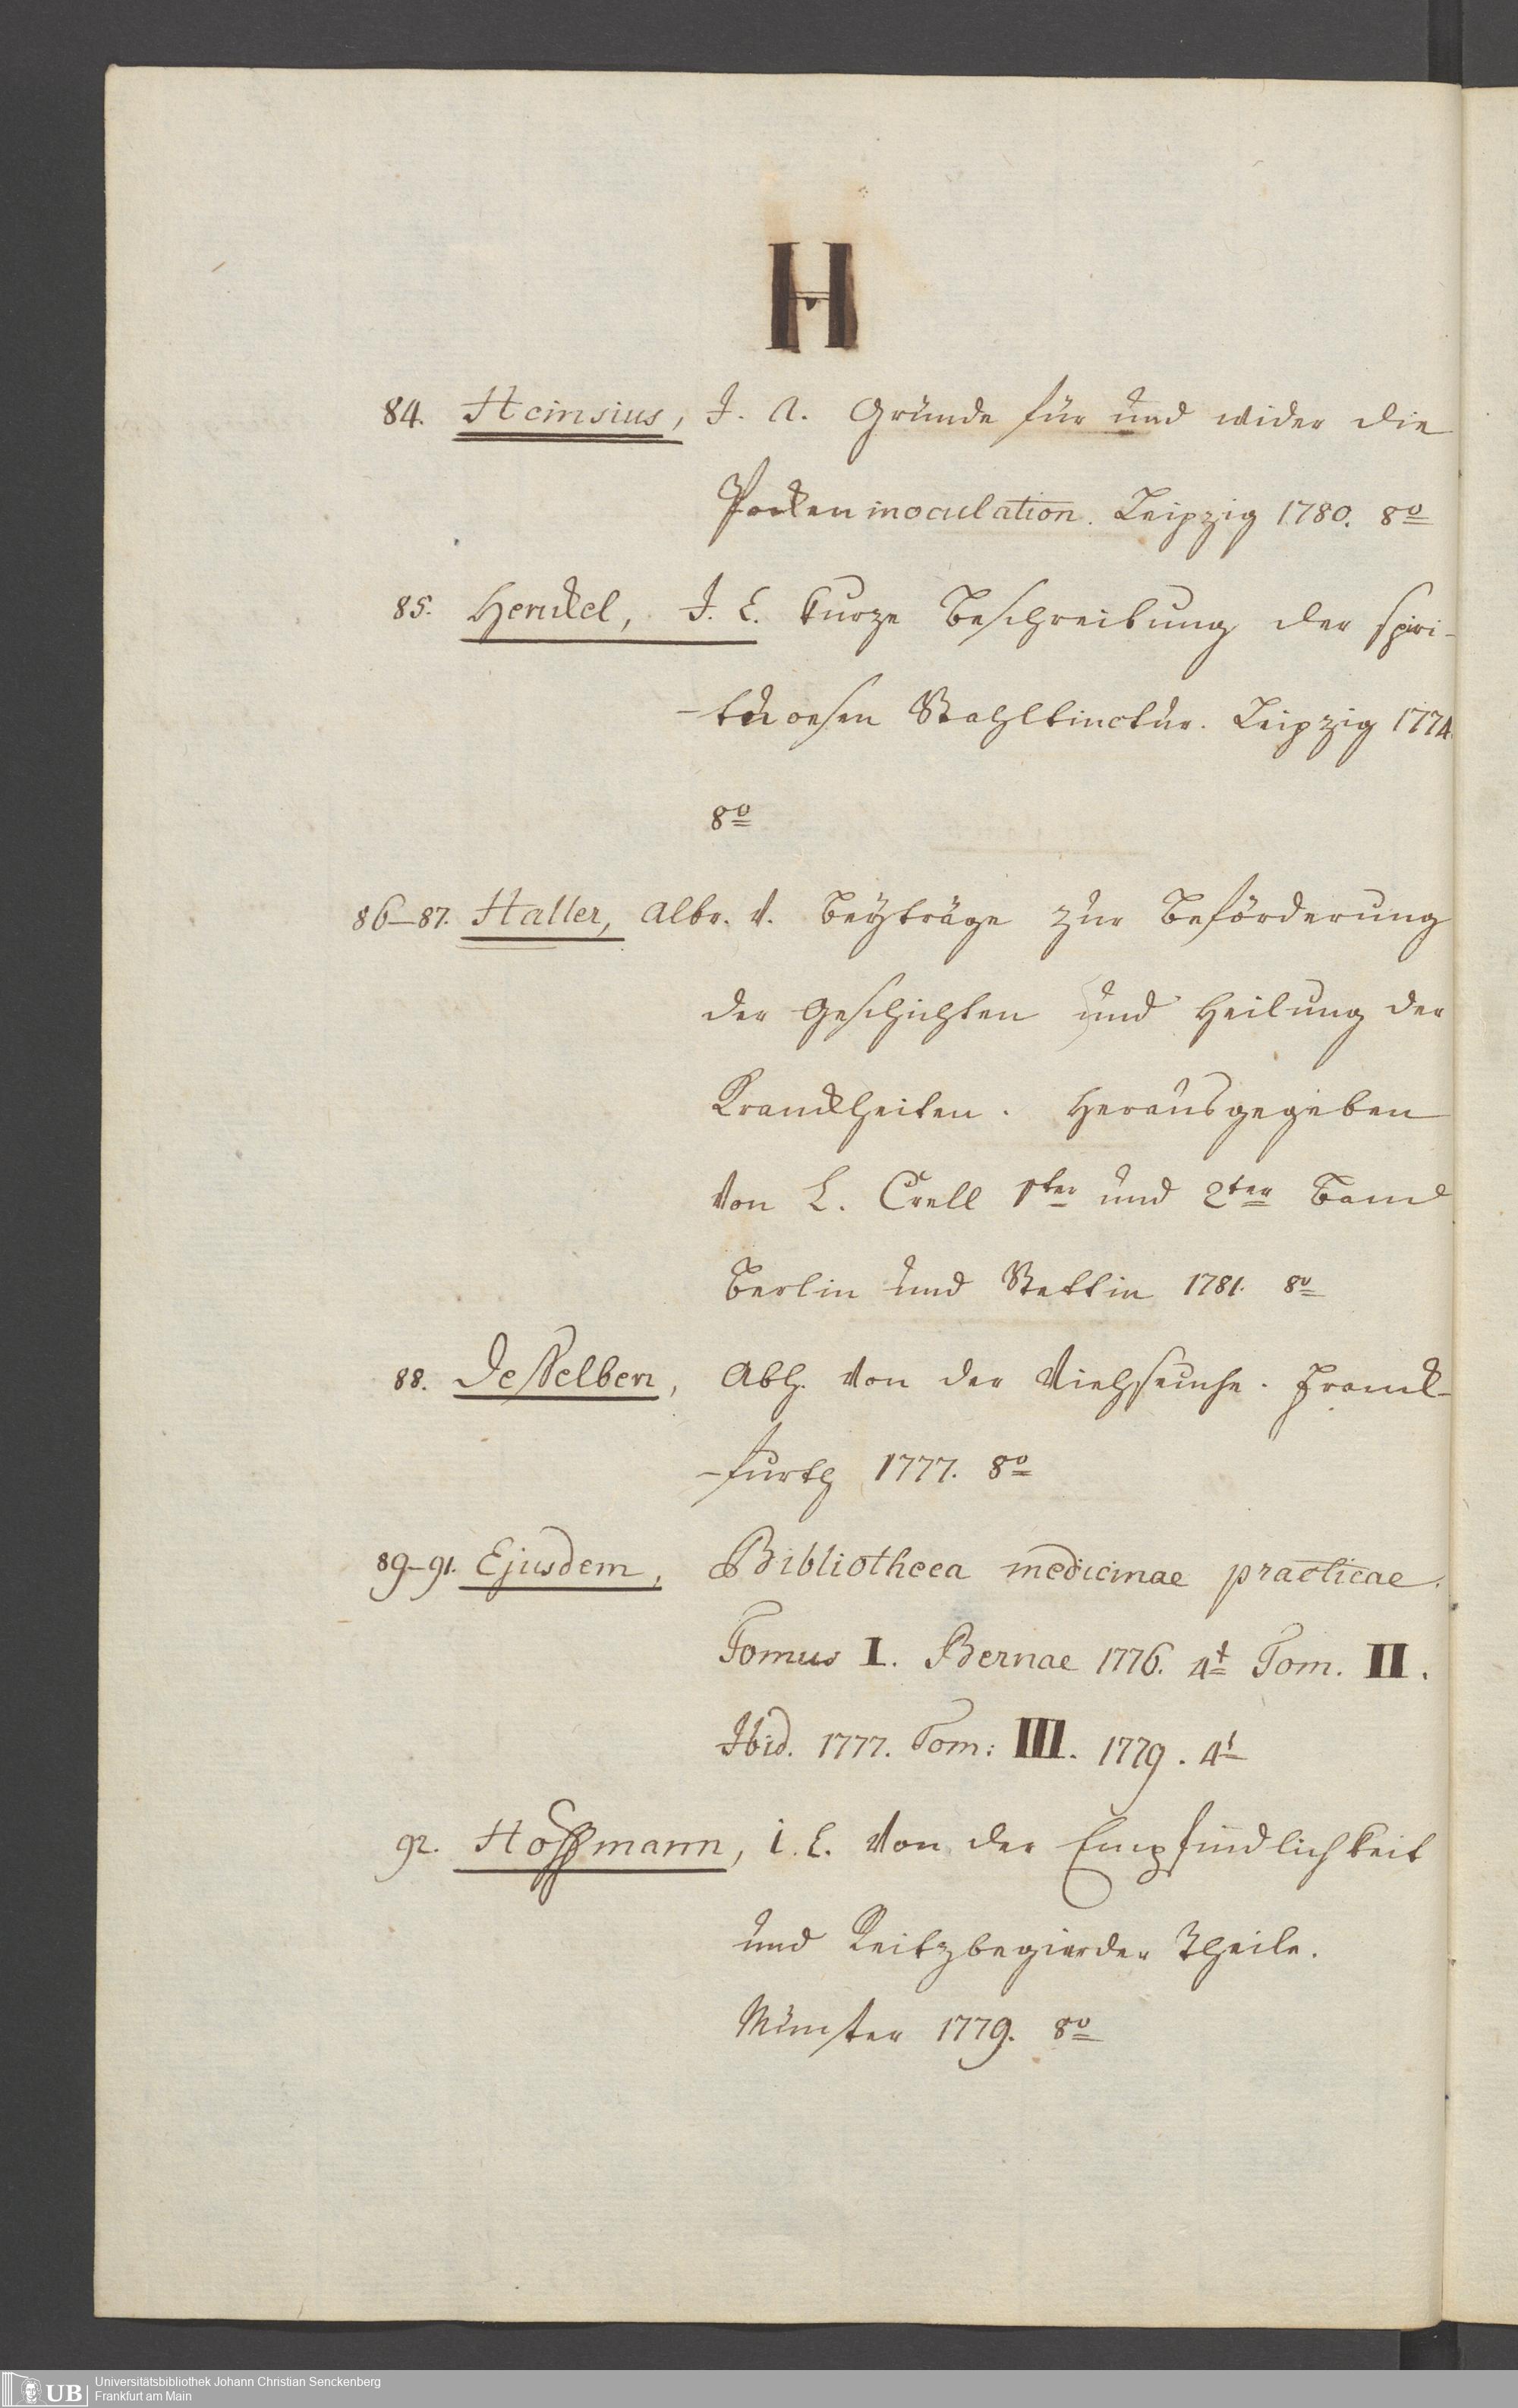 H
84. Heinsius, J. A. Gründe für und wider die
Pocken inoculation. Leipzig 1780. 8º
85. Henckel, J. E. kurze Beschreibung der spiri-
-tuoesen Stahltinctur. Leipzig 1774.
8º
86-87. Haller, Albr. v. Beyträge zur Beförderung
der Geschichten und Heilung der
Kranckheiten. Herausgegeben
von L. Crell 1ter und 2ter Band
Berlin und Stettin 1781. 8º
88. Desselben, Abh. von der Viehseuche. Franck-
-furth 1777. 8º
89-91. Ejusdem, Bibliotheca medicinae practicae.
Tomus I. Bernae 1776. 4t Tom. II.
Ibid. 1777. Tom: III. 1779. 4t
92. Hoffmann, i. E. Von der Empfindlichkeit
und Reitzbegierder Theile.
Münster 1779. 8º
UB
Universitätsbibliothek Johann Christian Senckenberg
Frankfurt am Main